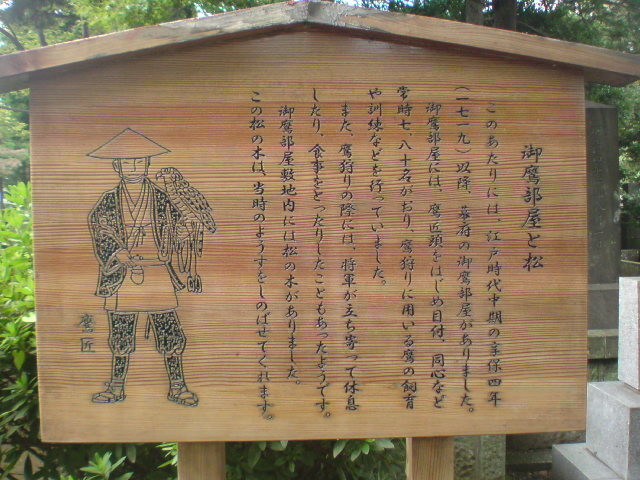 御鷹部屋と松
このあたりには、江戸時代中期の享保四年
(一七一九)以降、幕府の御鷹部屋がありました。
御鷹部屋には、鷹匠頭をはじめ目付、同心など
常時七、八十名がおり、鷹狩りに用いる鷹の飼育
や訓練などを行っていました。
また、鷹狩りの際には、将軍が立ち寄って休息
したり、食事をとったりしたこともあったようです。
御鷹部屋敷地内には松の木がありました。
この松の木は、当時のようすをしのばせてくれます。
鷹匠